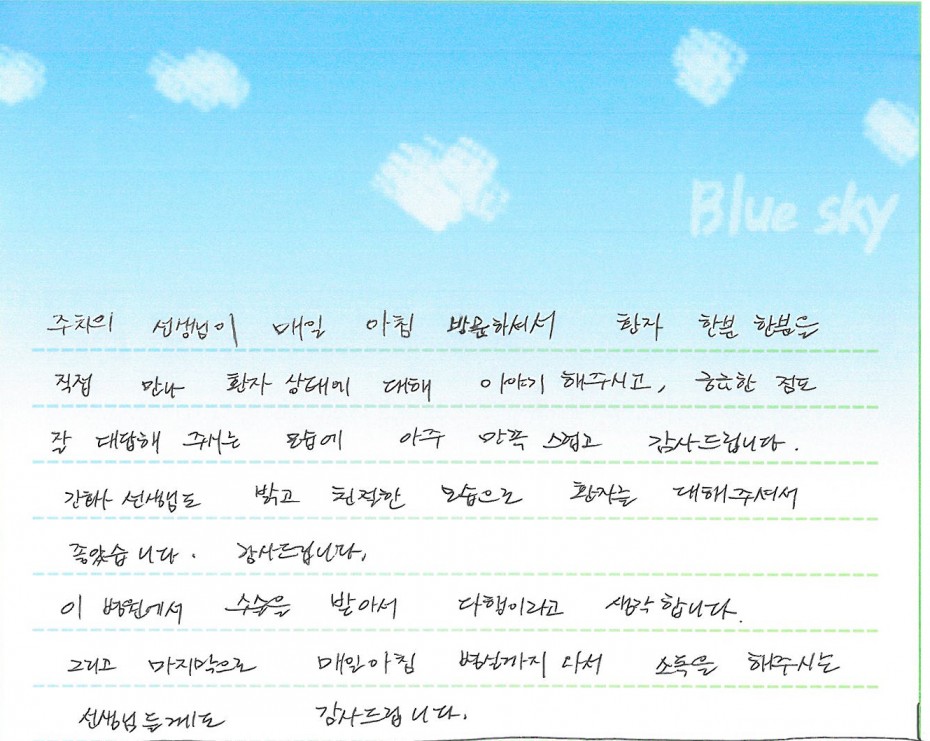 Blue sky
주치의 선생님이 매일 아침 방문하셔서 환자 한분 한분을
직접 만나 환자 상태에 대해 이야기 해주시고, 궁금한 점도
잘 대답해 주시는 모습에 아주 만족 스럽고 감사드립니다.
간호사 선생님도 밝고 친절한 모습으로 환자를 대해주셔서
좋았습니다. 감사드립니다.
이 병원에서 수술을 받아서 다행이라고 생각합니다.
그리고 마지막으로 매일아침 병실까지 와서 소독을 해주시는
선생님들께도 감사드립니다.